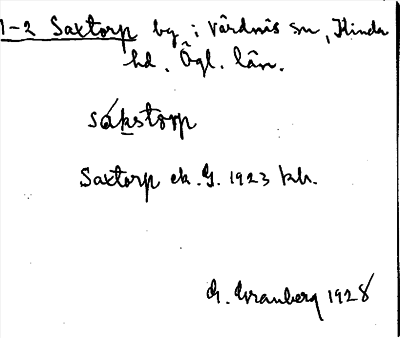 1-2 Saxtorp by i Vårdnäs sn, Kinda
hd. Ögl. län.
sákstorp
Saxtorp ek. G. 1923 kb.
G. Granberg 1928